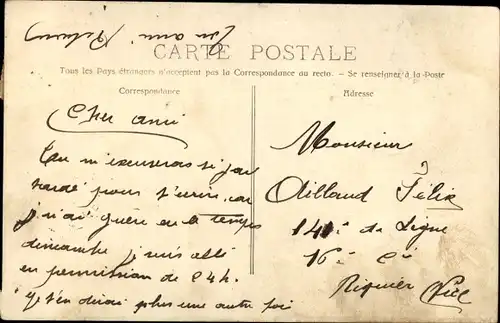 CARTE POSTALE
Tous les Pays étrangers n'acceptent pas la Correspondance au recto. - Se renseigner à la Poste
Correspondance
Adresse
Cher ami
Tu m'excuseras si j'ai
tardé pour t'écrire, car
j'n'ai guère eu le temps
dimanche je suis allé
en permission de 24h.
je t'en dirai plus une autre foi
Ton ami
Monsieur
Aillaud Félix
141è de Ligne
16è Cie
Riquier Nice